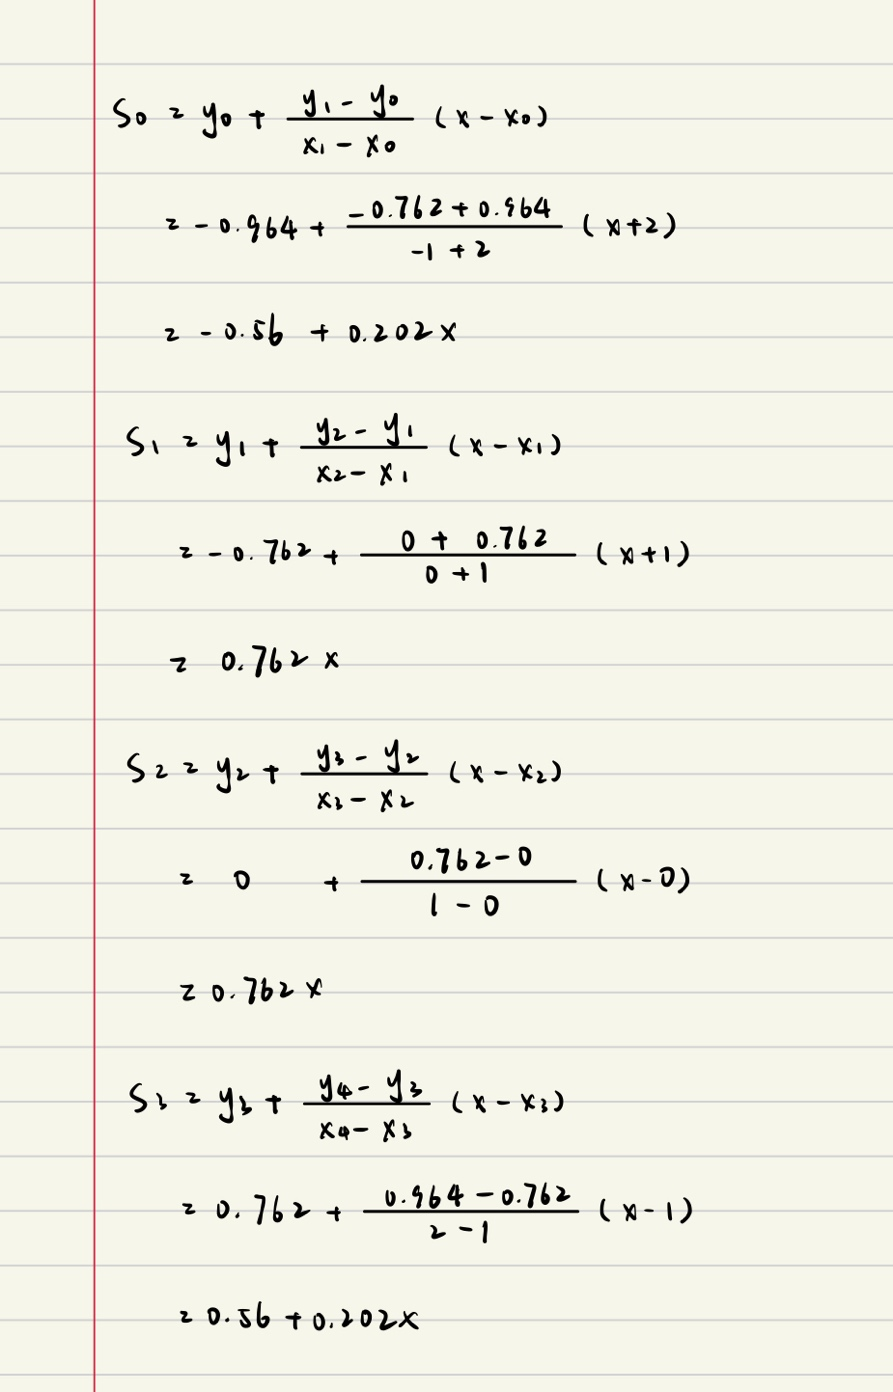 S₀ = y₀ + (y₁ - y₀)/(x₁ - x₀) (x - x₀)
= -0.964 + (-0.762 + 0.964)/(-1 + 2) (x+2)
= -0.56 + 0.202x
S₁ = y₁ + (y₂ - y₁)/(x₂ - x₁) (x - x₁)
= -0.762 + (0 + 0.762)/(0 + 1) (x+1)
= 0.762x
S₂ = y₂ + (y₃ - y₂)/(x₃ - x₂) (x - x₂)
= 0 + (0.762 - 0)/(1 - 0) (x - 0)
= 0.762x
S₃ = y₃ + (y₄ - y₃)/(x₄ - x₃) (x - x₃)
= 0.762 + (0.964 - 0.762)/(2 - 1) (x - 1)
= 0.56 + 0.202x